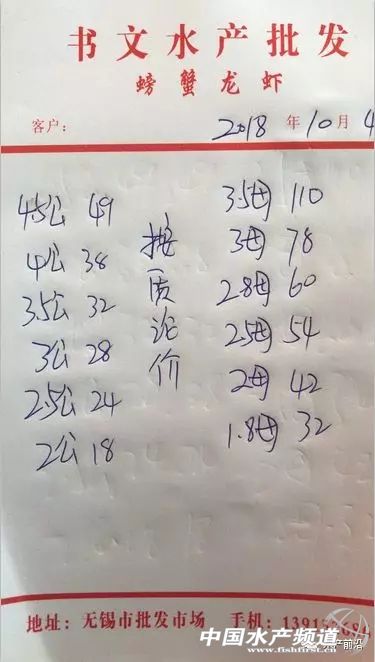 书文水产批发
螃蟹龙虾
客户：
2018年10月4
4.5公 49
4公 38
3.5公 32
3公 28
2.5公 24
2公 18
按质论价
3.5母 110
3母 78
2.8母 60
2.5母 54
2母 42
1.8母 32
地址：无锡市批发市场 手机：13915
中国水产频道
www.fishfirst.cn
产前沿